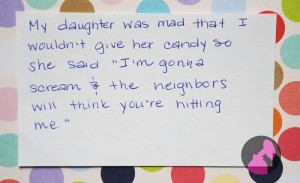 My daughter was mad that I
wouldn't give her candy so
she said "I'm gonna
scream & the neighbors
will think you're hitting
me."